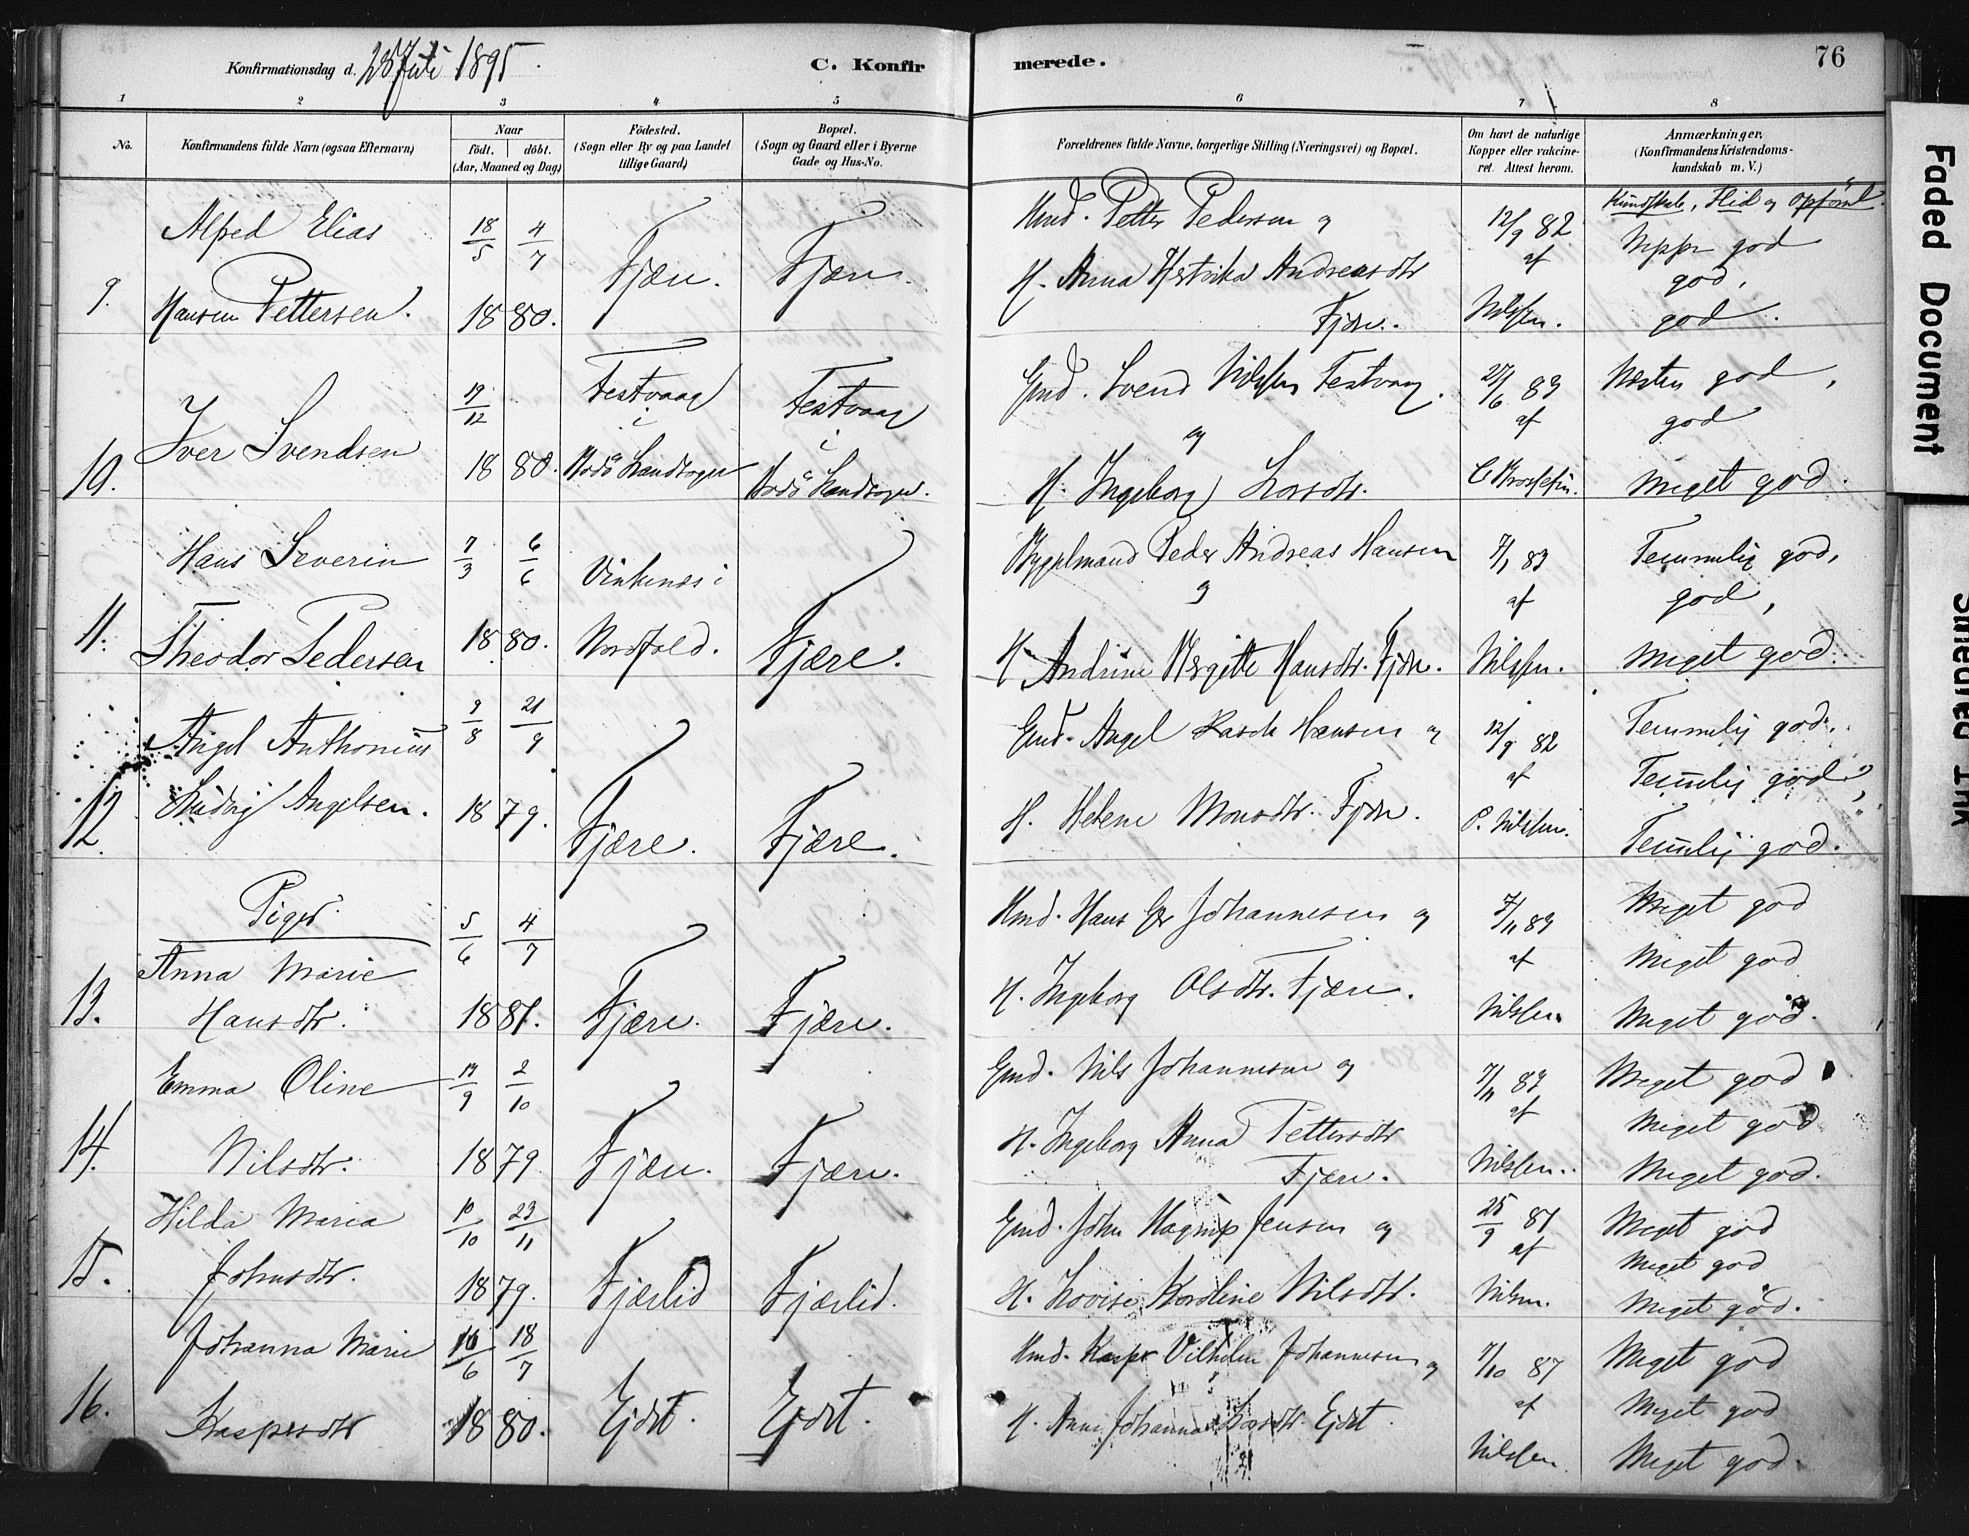 Konfirmationsdag d. 28 Juli 1895.
C. Konfirmerede.
76
1 2 3 4 5 6 7 8
No.
Konfirmandens fulde Navn (ogsaa Efternavn)
Naar
født. døbt.
(Aar, Maaned og Dag)
Fødested.
(Sogn eller By og paa Landet
tillige Gaard)
Bopæl.
(Sogn og Gaard eller i Byerne
Gade og Hus-No.
Forældrenes fulde Navne, borgerlige Stilling (Næringsvei) og Bopæl.
Om havt de naturlige
Kopper eller vakcine-
ret. Attest herom.
Anmærkninger.
(Konfirmandens Kristendoms-
kundskab m. V.)
Kundskab, Flid og Opførsel.
9. Alfred Elias
Hansen Pettersen.
18/5 4/7
1880.
Fjære. Fjære.
Petter Pedersen og
H. Anna Andreasdtr
Fjære.
12/9 82
af
Nilssen.
god
god,
god.
10. Iver Svendsen
19/12
1880.
Festvaag
i
Bodø Landsogn
Festvaag
i
Bodø Landsogn.
Gmd. Svend Nilssen Festvaag.
og
H. Ingeborg Larsdtr.
27/6 83
af
Næsten god,
god
meget god.
11. Hans Severin
Theodor Pedersen
7/3 6/6
1880.
Vinkenes i
Nordfold.
Fjære.
Peder Andreas Hansen
og
H. Andrine Bergitte Hansdtr. Fjære.
7/1 83
af
Nilssen.
Temmelig god,
god,
meget god.
12. Angel Anthonius
Ludvig Angelsen.
9/8 21/9
1879.
Fjære. Fjære.
Gmd. Angel Rasch Hansen og
H. Helene Monsdtr. Fjære.
12/9 82
af
P. Nilssen.
Temmelig god,
Temmelig god,
Temmelig god.
Piger.
13. Anna Marie
Hansdtr.
5/6 4/7
1881.
Fjære. Fjære.
Hans Johannesen og
H. Ingeborg Olsdtr. Fjære.
7/11 83
af
Nilssen
Meget god
Meget god
Meget god.
14. Emma Oline
Nilsdtr.
19/9 2/10
1879
Fjære. Fjære.
Gmd. Nils Johannesen og
H. Ingeborg Anna Pettersdtr
Fjære.
7/11 83
af
Nilssen.
Meget god
Meget god
Meget god.
15. Hilda Maria
Johnsdtr.
10/10 23/11
1879.
Fjærlid Fjærlid.
Gmd. John Hagrup Jensen og
H. Lovise Karoline Nilsdtr.
25/9 81
af
Nilsen.
Meget god
Meget god
Meget god.
16. Johanna Marie
Kaspersdtr
16/6 18/7
1880.
Ejdet. Ejdet.
Kasper Vilhelm Johannesen og
H. Anne Johanna Ejdet.
7/10 87
af
Nilssen
Meget god
Meget god
Meget god.
Faded Document